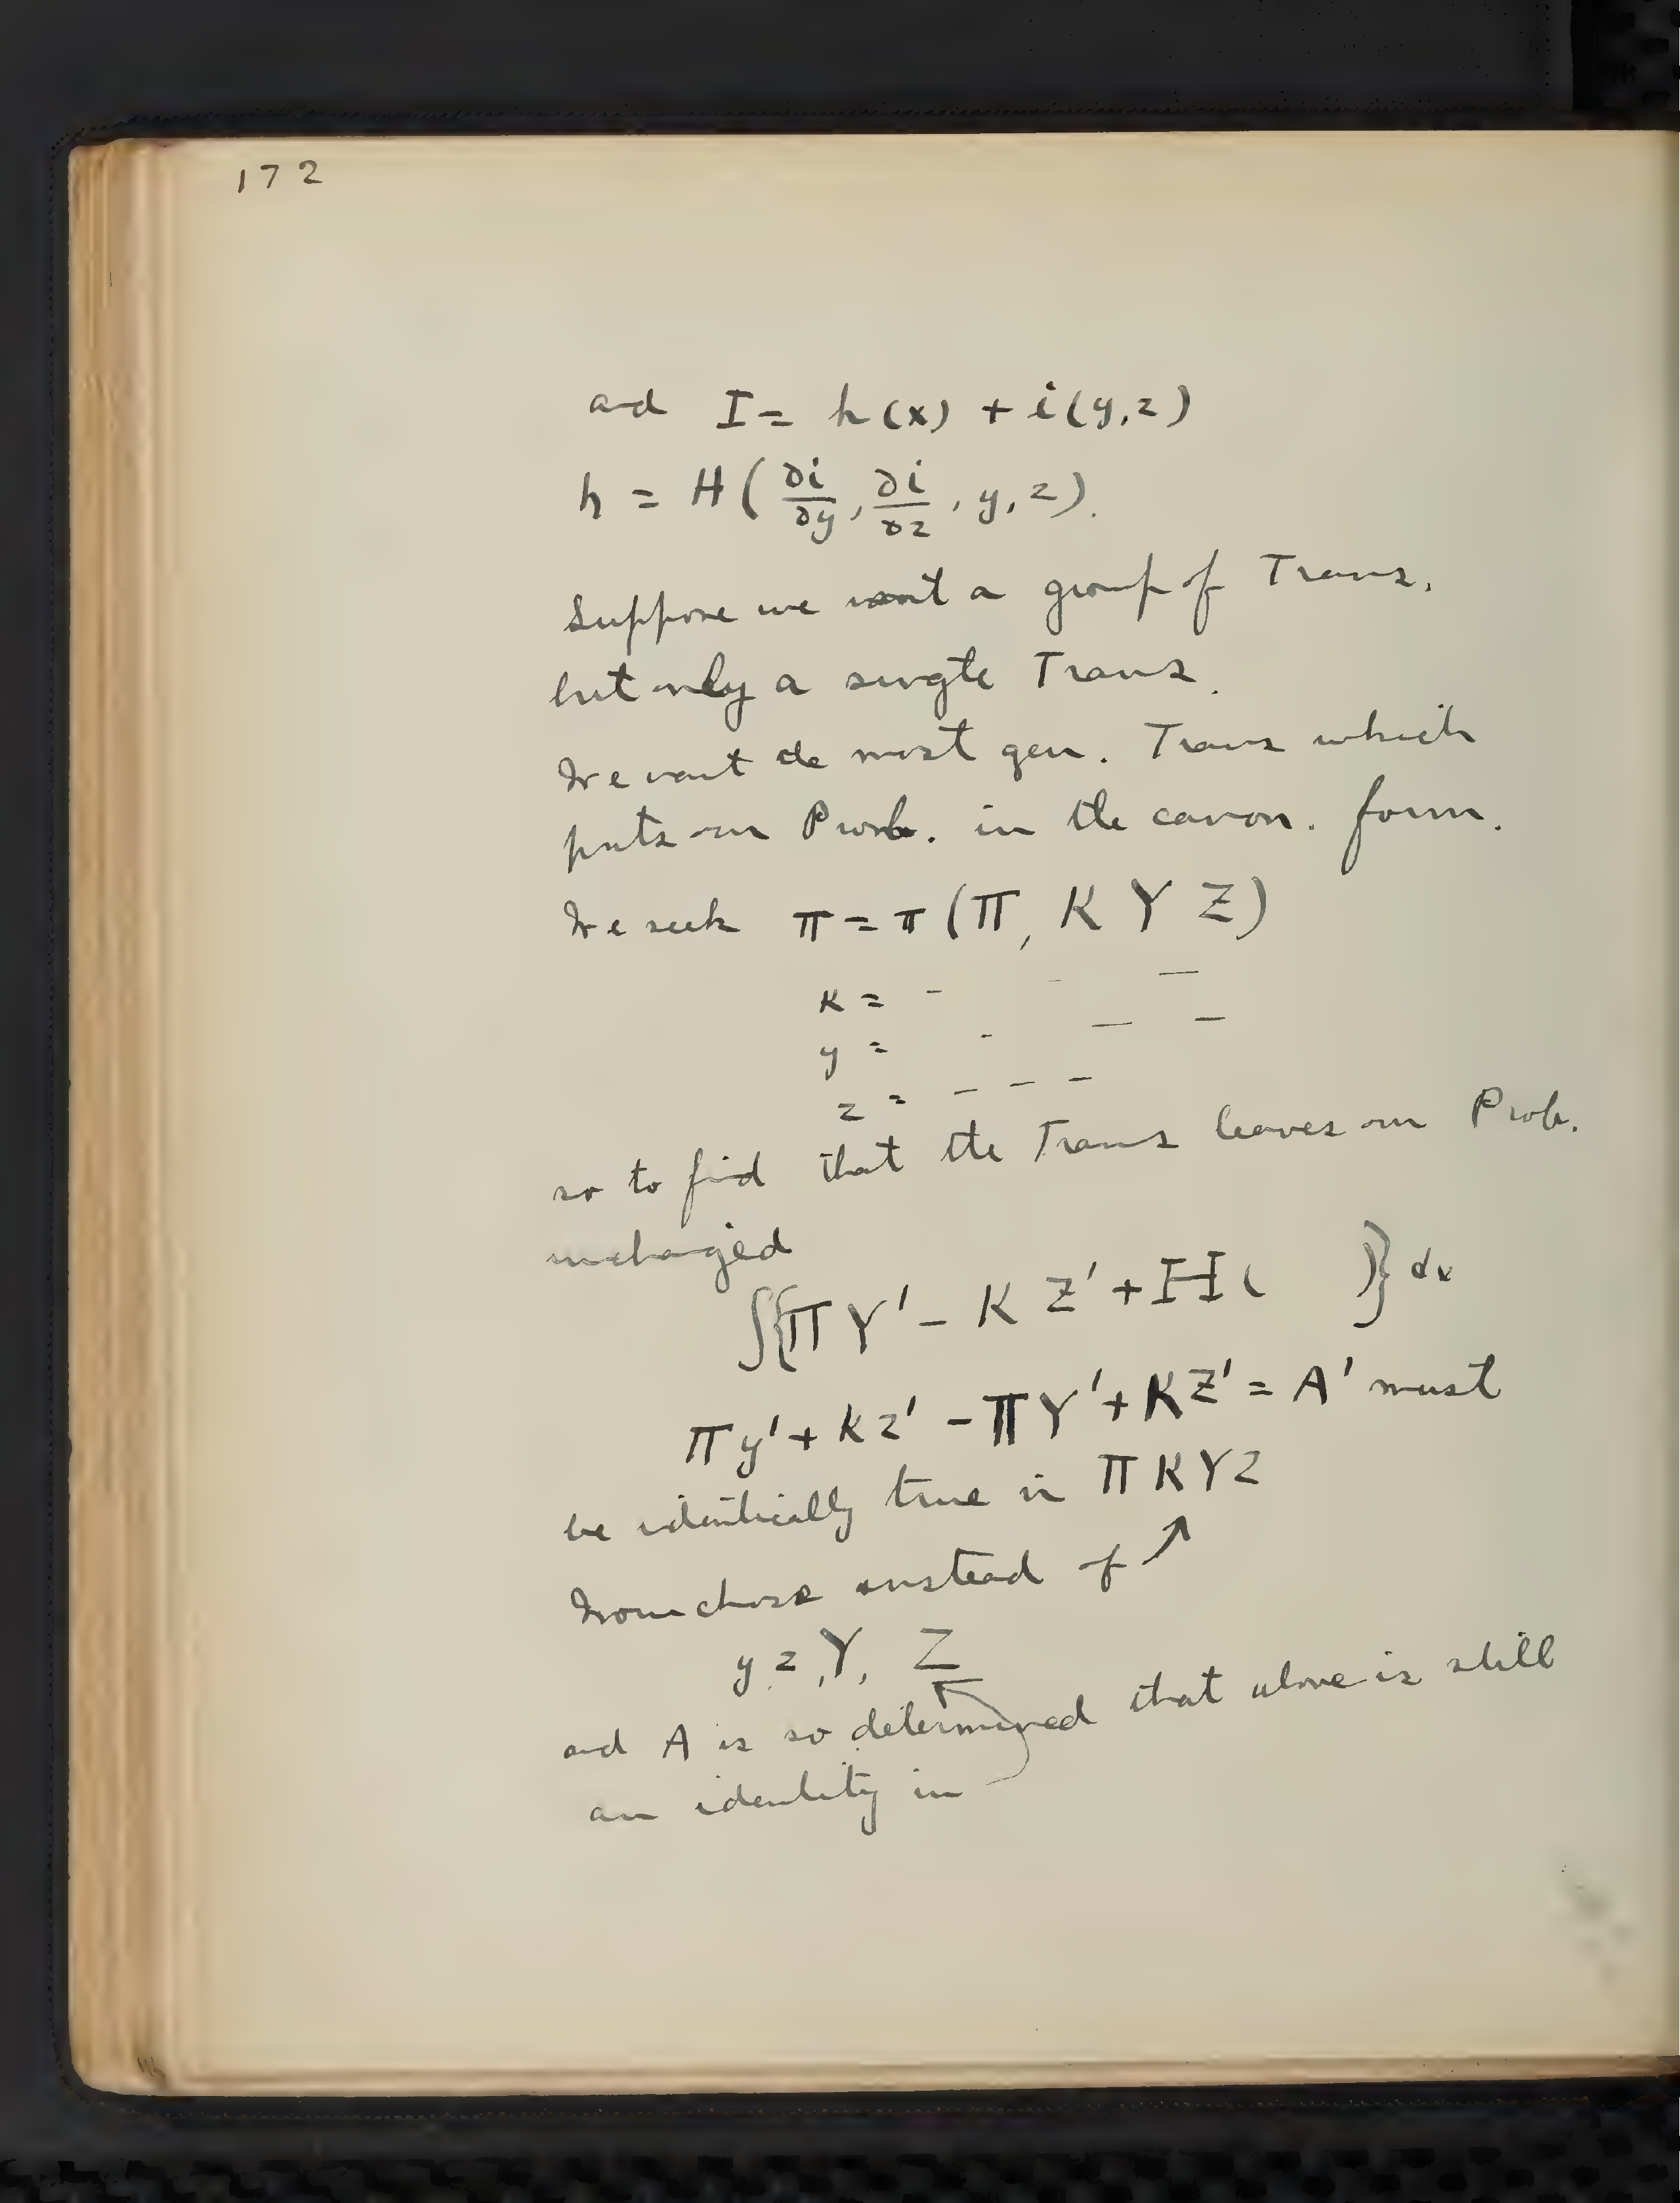 172
and I = h(x) + i(y,z)
h = H(∂i/∂y, ∂i/∂z, y, z).
Suppose we want a group of Trans.
but only a single Trans.
We want the most gen. Trans which
puts our Prob. in the canon. form.
We seek π = π(Π, K Y Z)
κ = - - —
y = - — —
z = — — —
so to find that the Trans leaves our Prob.
unchanged
∫{ΠY' - K Z' + H( )} dx
πy' + κz' - ΠY' + KZ' = A' must
be identically true in Π K Y Z
Now chose instead of ↗
y z, Y, Z
and A is so determined that above is still
an identity in